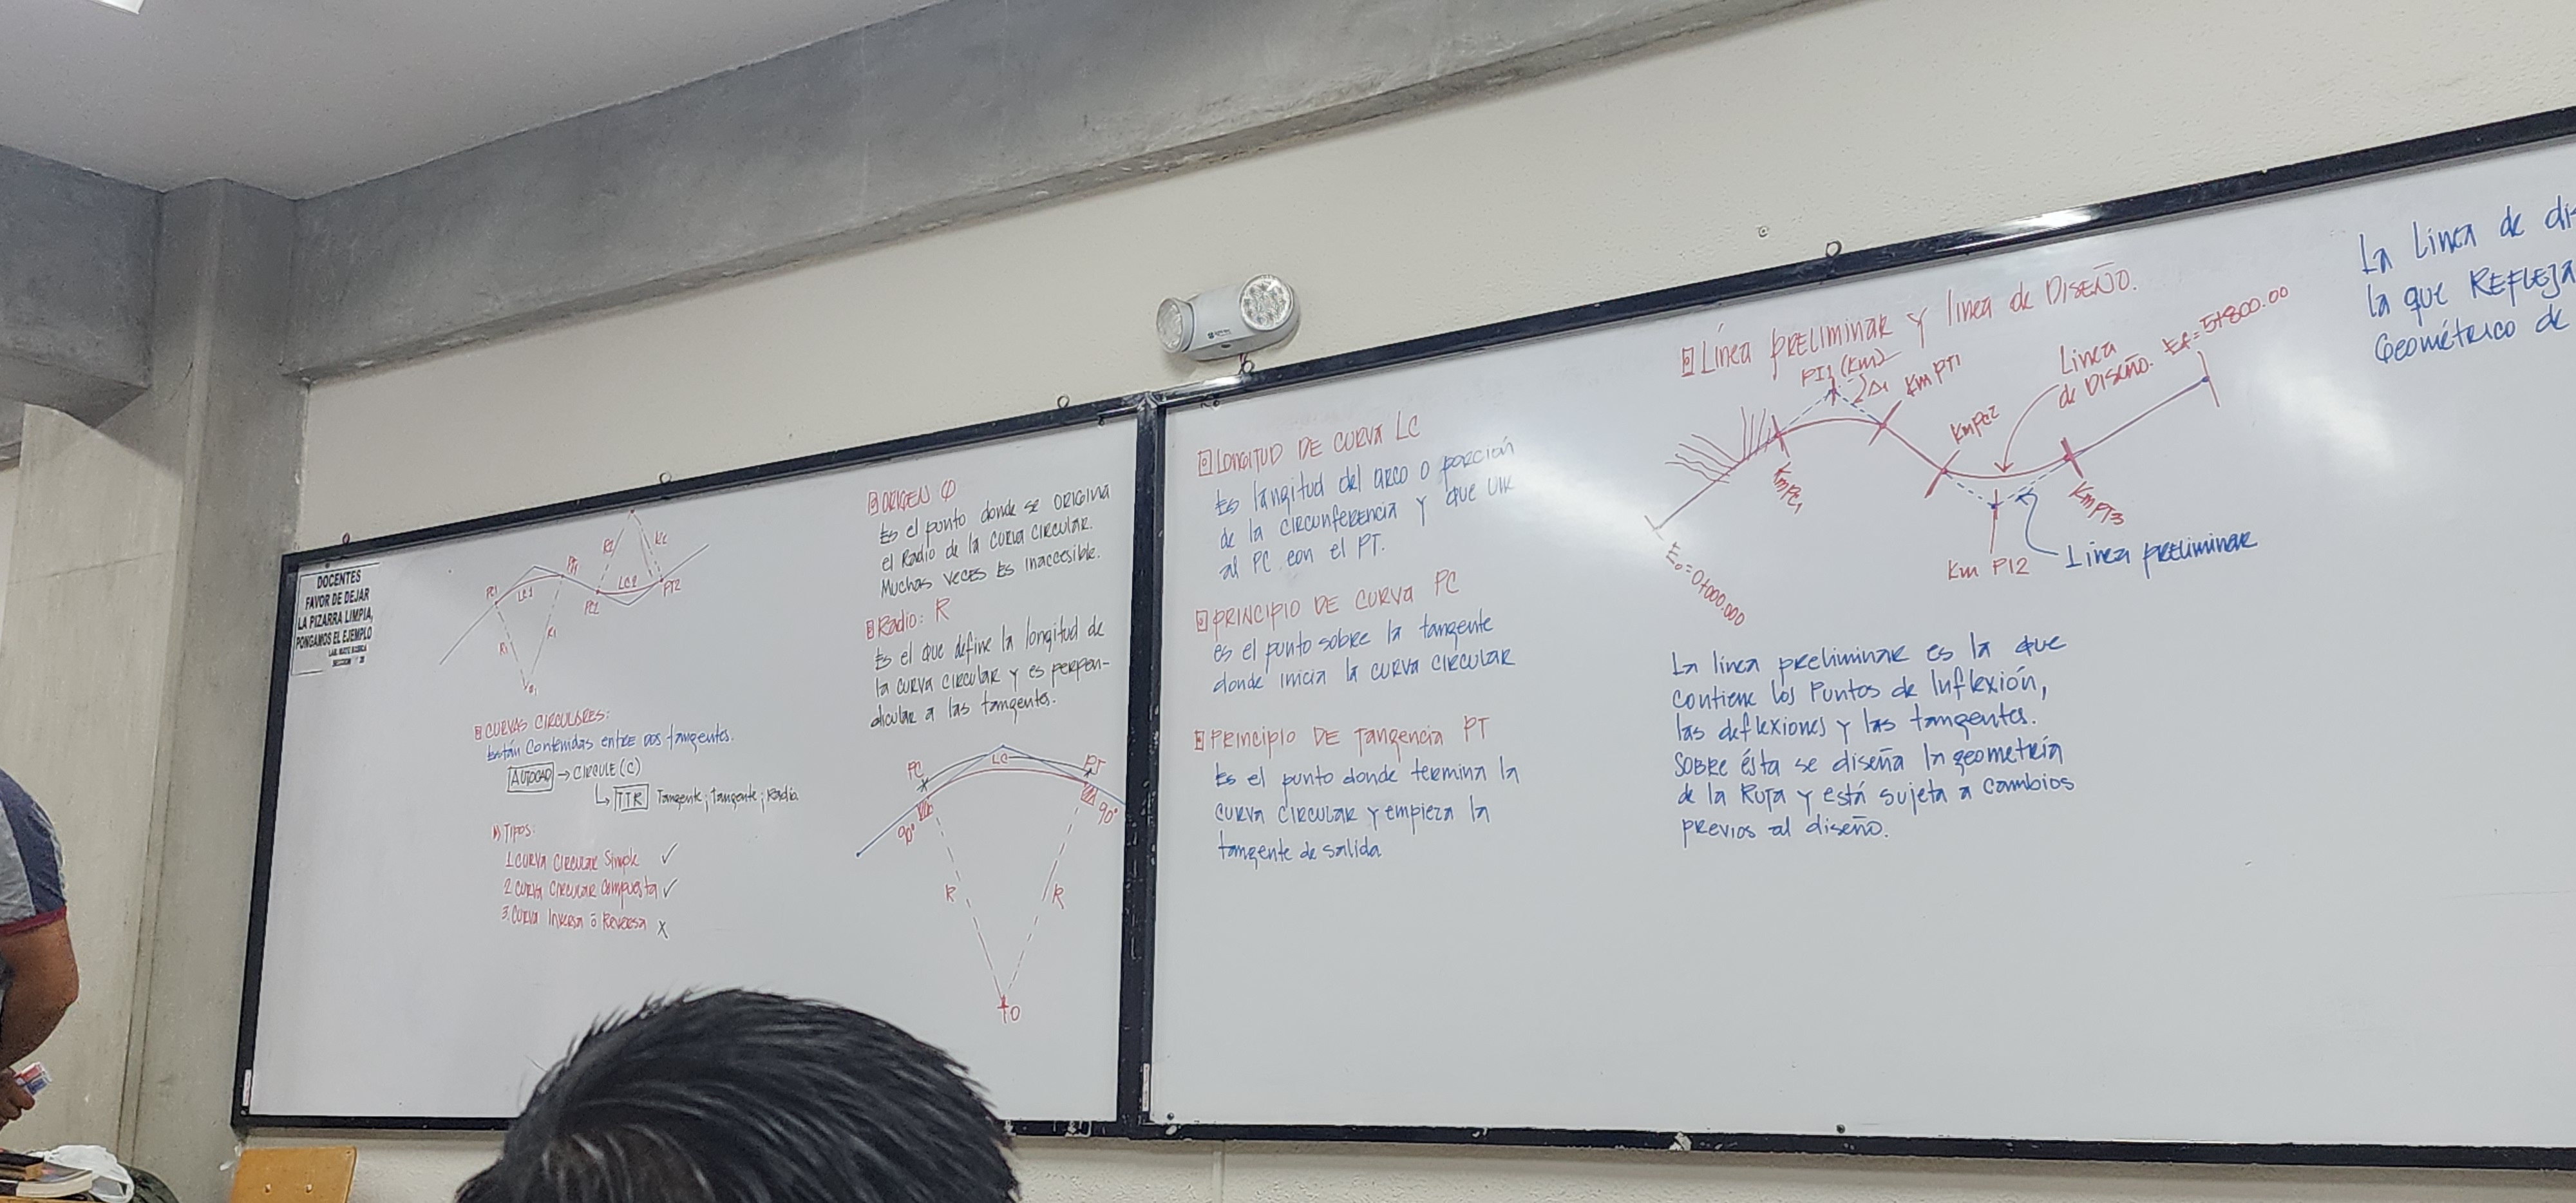 DOCENTES
FAVOR DE DEJAR
LA PIZARRA LIMPIA,
PONGAMOS EL EJEMPLO
PC1
LC1
R1
R1
R2
LC2
PT2
CURVAS CIRCULARES:
Están contenidas entre dos tangentes.
AUTOCAD → CIRCULE (C)
TTR Tangente, Tangente, Radio.
Tipos:
1. Curva Circular Simple ✓
2. Curva Circular Compuesta ✓
3. Curva Inversa ó Reversa x
ORIGEN
Es el punto donde se origina
el Radio de la curva circular.
Muchas veces es inaccesible.
Radio: R
Es el que define la longitud de
la curva circular y es perpen-
dicular a las tangentes.
PC
LC
PT
90°
90°
R
R
O
LONGITUD DE CURVA LC
Es langitud del arco o porción
de la circunferencia y que une
al PC con el PT.
PRINCIPIO DE CURVA PC
es el punto sobre la tangente
donde inicia la curva circular
Principio DE Tangencia PT
Es el punto donde termina la
curva circular y empieza la
tangente de salida
Línea preliminar y línea de DISEÑO.
PI1 (Km)
Δ1
Km PT1
Km PC1
Km PC2
Línea
de DISEÑO.
Ef=5+800.00
Km PT3
Km PI2
Línea preliminar
E0=0+000.000
La línea preliminar es la que
contiene los Puntos de Inflexión,
las deflexiones y las tangentes.
SOBRE ésta se diseña la geometría
de la Ruta y está sujeta a cambios
previos al diseño.
La Línea de
la que REFLEJA
Geométrico de